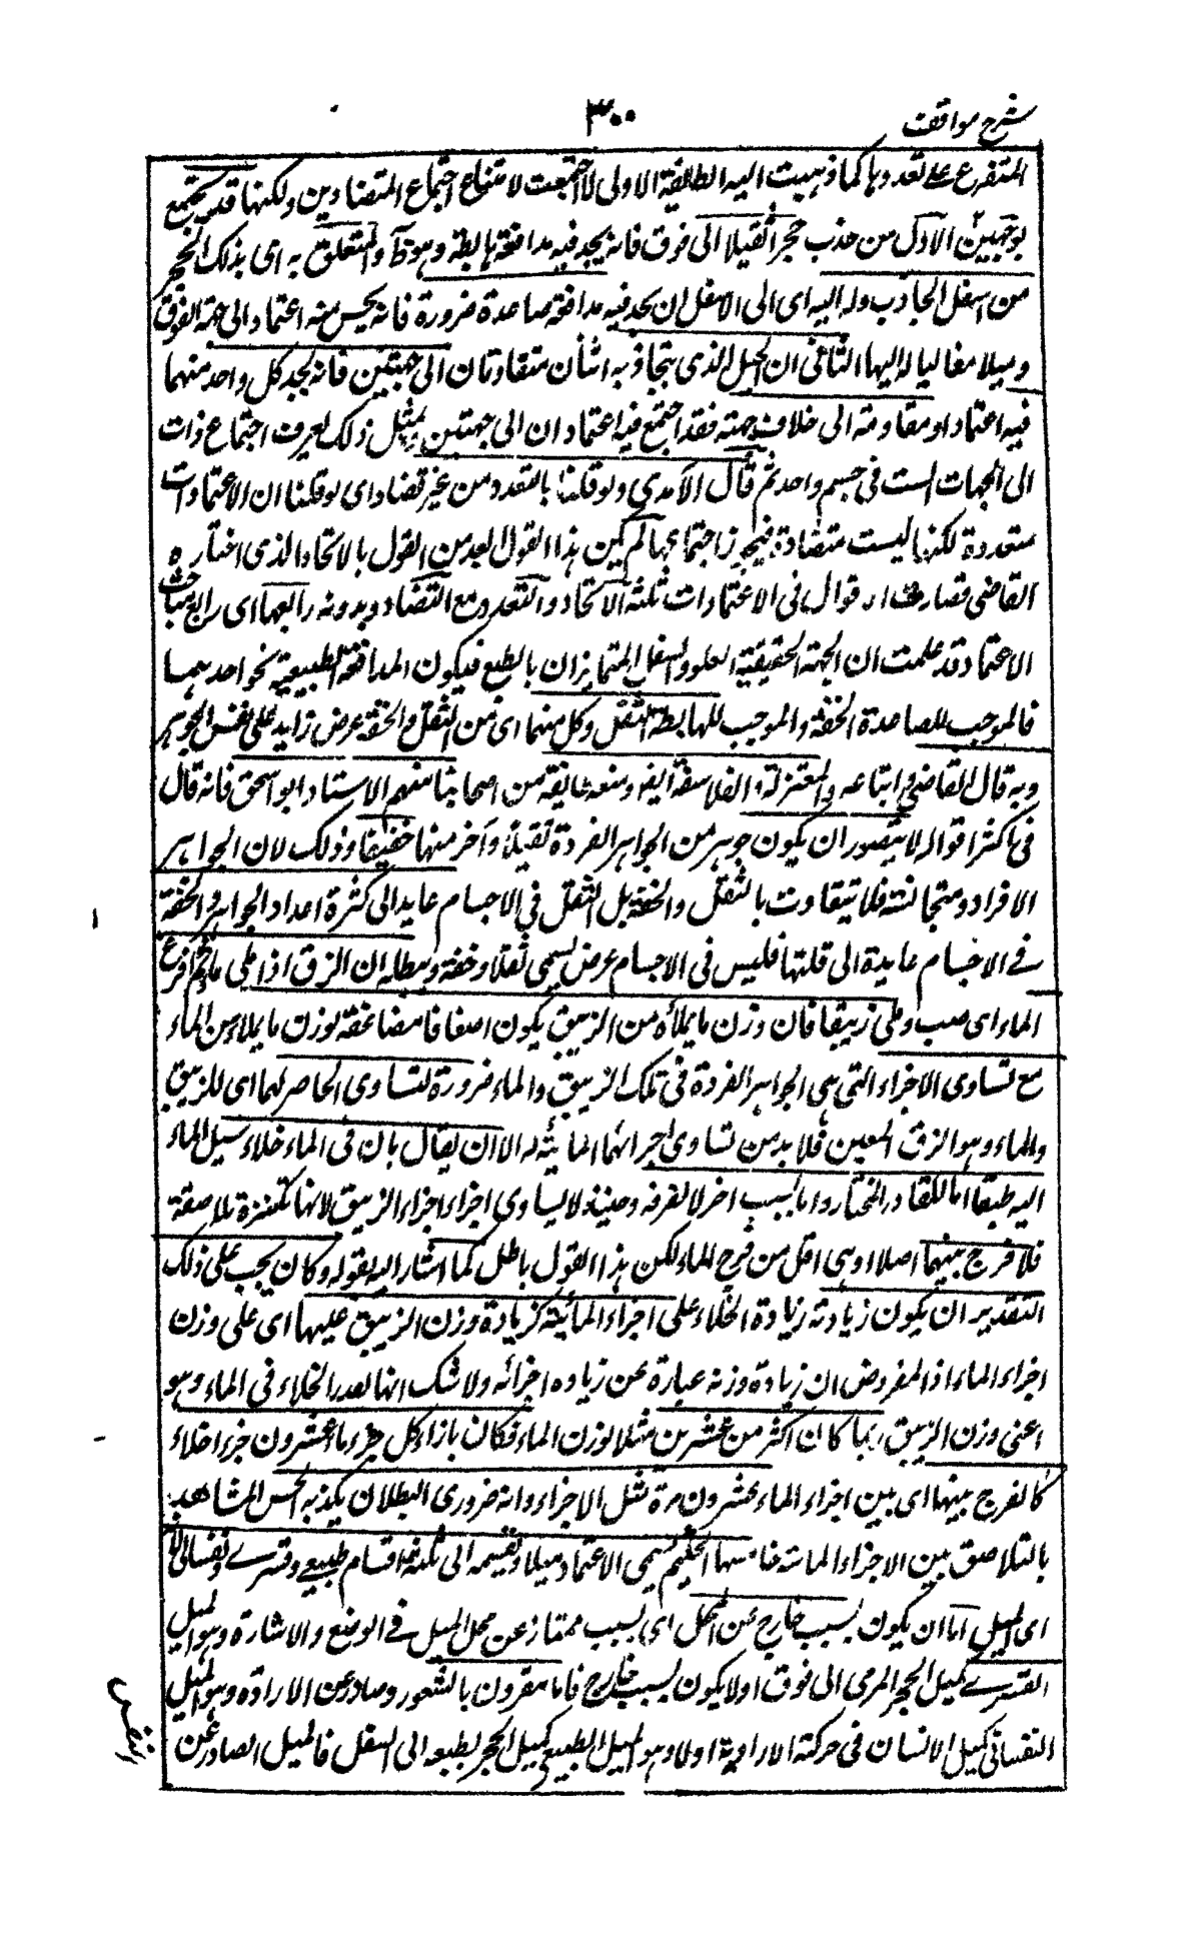 شرح مواقف
٣٠٠
المتفرع على تعددها كما ذهبت اليه الطائفة الاولى لا اجتمعت لامتناع اجتماع المتضادين ولكنها قد تجتمع
بوجهين الاول من جذب حجرا ثقيلا الى فوق فانه يجد فيه مدافعة هابطة وهو ظ والمتعلق به اى بذلك الحجر
من اسفل الجاذب له اليه اى الى الاسفل ان يجد فيه مدافعة صاعدة ضرورة فانه يحس منه اعتمادا الى جهة الفوق
وميلا مغالبا له اليها الثانى ان الحبل الذى يتجاذبه اثنان متقاومان الى جهتين فانه يجد كل واحد منهما
فيه اعتمادا ومقاومة الى خلاف جهته فقد اجتمع فيه اعتمادان الى جهتين بمثل ذلك يعرف اجتماع ذات
الى الجهات الست فى جسم واحد ثم قال الآمدى ولو قلنا بالتعدد من غير تضاد اى لو قلنا ان الاعتمادات
متعددة لكنها ليست متضادة فيجوز اجتماعها لم يكن هذا القول ابعد من القول بالاتحاد الذى اختاره
القاضى فصارت الاقوال فى الاعتمادات ثلثة الاتحاد والتعدد مع التضاد وبدونه رابعها اى رابع مباحث
الاعتماد قد علمت ان الجهة الحقيقية العلو والسفل المتمايزان بالطبع فيكون المدافعة الطبيعية نحو احدهما
فالموجب للصاعدة الخفة والموجب للهابطة الثقل وكل منهما اى من الثقل والخفة عرض زايد على نفس الجوهر
وبه قال القاضى واتباعه والمعتزلة والفلاسفة ايضا ومنعه طائفة من اصحابنا منهم الاستاد ابو اسحق فانه قال
فى اكثر اقواله لا يتصور ان يكون جوهر من الجواهر الفردة ثقيلا وآخر منها خفيفا وذلك لان الجواهر
الافراد متجانسة فلا تتفاوت بالثقل والخفة بل الثقل فى الاجسام عايد الى كثرة اعداد الجواهر والخفة
فى الاجسام عايدة الى قلتها فليس فى الاجسام عرض يسمى ثقلا وخفة ويبطله ان الزق اذا ملى ماء ثم افرغ
الماء اى صب وملى زيبقا فان وزن ما يملأه من الزيبق يكون اضعافا مضاعفة لوزن ما يملاه من الماء
مع تساوى الاجزاء التى هى الجواهر الفردة فى تلك الزيبق والماء ضرورة لتساوى الحاصر لهما اى للزيبق
والماء وهو الزق المعين فلا بد من تساوى اجزائهما المالية له الا ان يقال بان فى الماء خلاء لا يسيل الماء
اليه طبقا اما للقادر المختار واما لسبب اخر لا نعرفه وحينئذ لا يساوى اجزاؤه اجزاء الزيبق لانها مكتنزة متلاصقة
فلا فرج بينهما اصلا او هى اقل من فرج الماء لكن هذا القول باطل كما اشار اليه بقوله وكان يجب على ذلك
التقدير ان يكون زيادته زيادة الخلاء على اجزاء المائية كزيادة وزن الزيبق عليها اى على وزن
اجزاء الماء اذ المفروض ان زيادة وزنه عبارة عن زياده اجزائه ولا شك انها بعدد الخلاء فى الماء وهو
اعنى وزن الزيبق ربما كان اكثر من عشرين مثلا لوزن الماء فكان بازاء كل جزء ماء عشرون جزء اخلاء
كالفرج بينهما اى بين اجزاء الماء عشرون مرة مثل الاجزاء وانه ضرورى البطلان يكذبه الحس المشاهد
بالتلاصق بين الاجزاء المائية خامسها الحكيم يسمى الاعتماد ميلا وتقسيمه الى ثلثة اقسام طبيعى وقسرى ونفسانى لانه
اى الميل اما ان يكون بسبب خارج عن المحل اى بسبب ممتاز عن محل الميل فى الوضع والاشارة وهو الميل
القسرى كميل الحجر المرمى الى فوق اولا يكون بسبب خارج فاما مقرون بالشعور وصادر عن الارادة وهو الميل
النفسانى كميل الانسان فى حركته الارادية اولا وهو الميل الطبيعى كميل الحجر بطبعه الى السفل فالميل الصادر عن
النفس